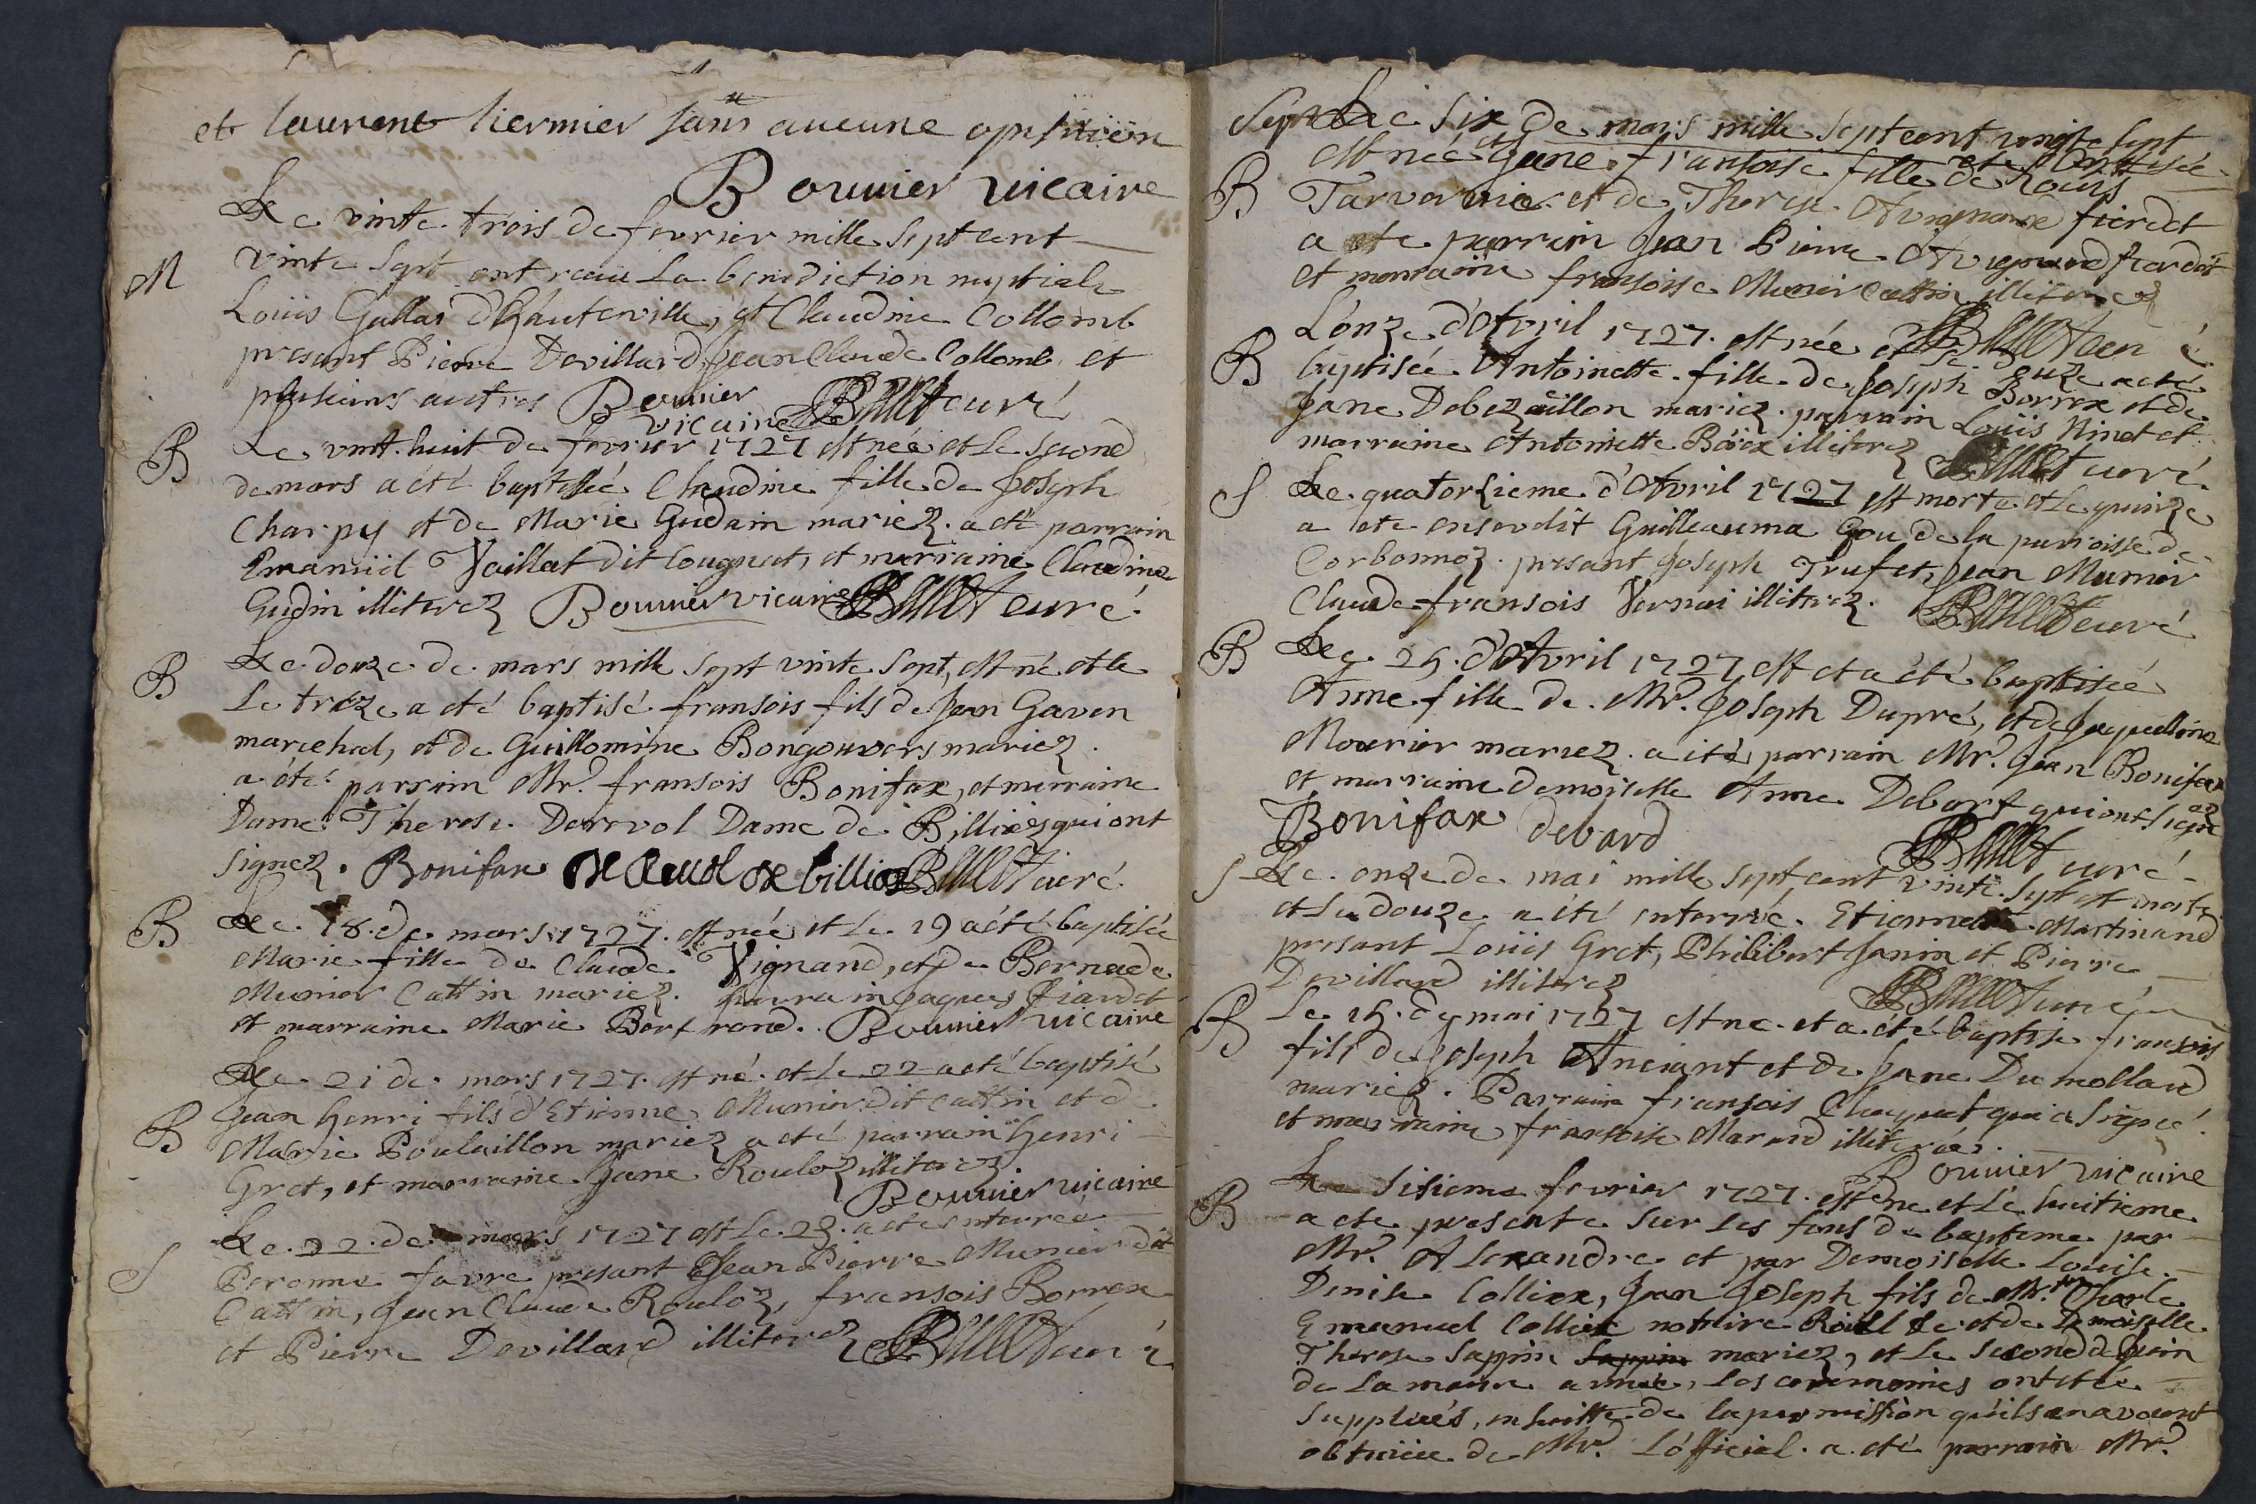 et laurent liermier sans aucune opisition
Bouuier uicaire
Le vinte trois de fevrier mille sept cent
M
vinte sept ont reciu la benediction nuptiale
Loüis Gallas d'hauteville, et Claudine Collomb
presant Pierre Devillard, Jean Claude Collomb et
plusieurs autres Bouuier
vicaire curé
B
Le vint-huit de fevrier 1727 est neé et le second
de mars a eté baptisée Claudine fille de Joseph
Charpy et de Marie Gudain mariez. a eté parrain
Emanuel Vaillat dit Cougnat, et marraine Claudine
Gudin illiterez Bouuier vicaire curé.
Le douze de mars mille sept vinte sept, est né et le
B
Le treze a eté baptisé fransois fils de Jean Gaven
marechal, et de Guillomine Bongouvers mariez.
a été parrain Mr. fransois Bonifax, et marraine
Dame Therese Derevol Dame de Billiez qui ont
signez. Bonifax de billiez curé
B
Le 18. de mars 1727. est née et le 19 a été baptisée
Marie fille de Claude Vignand, et de Bernade
Munier Cattin mariez. parrain Jaques fiardet
et marraine Marie Bertrand. Bouuier uicaire
Le 21 de mars 1727. est né et le 22 a eté baptisé
Jean henri fils d'Etienne Munier dit Cattin et de
B
Marie Poulaillon mariez a eté parrain henri
Gret, et marraine Jane Rouloz illiterez
Bouuier uicaire
Le 22. de mars 1727 est le 23. a eté enterrée
S
Peronne favre presant Jean Pierre Munier dit
Cattin, Jean Claude Rouloz, fransois Borrex
et Pierre Devillard illiterez curé
Le six de mars mille septcent vingte sept
est née et Jane fransoise fille de Louis
B
Tavernie et de Therese Avignand fierdet
a ete parrain Jean Pierre Avignand fierdet
et marraine fransoise Munier Cattin illiterez
curé
L'onze d'Avril 1727. est née et le douze a eté
B
baptisée Antoinette fille de Joseph Borrex et de
Jane Debezaillon mariez. parrain Loüis Ninet et
marraine Antoinette illiterez curé.
S
Le quatorsieme d'Avril 1727 est morte et le quinze
a ete ensevelit Guilleauma Gou de la parroisse de
Corbonnoz. presant Joseph Trufet, Jean Munier
Claude fransois Vernai illiterez. curé
B
Le 25. d'Avril 1727 est et a été baptisée
Anne fille de Mr. Joseph Dupré, et de Jaquelline
Mourier mariez. a été parrain Mr. Jean Bonifax
et marraine demoiselle Anne Debart qui ont signez
Bonifax debard curé
S
Le onze de mai mille sept cent vinte-sept est mort
et le douze a été enterré. Etienne Martinand
presant Loüis Gret, Philibert Janin et Pierre
Devillard illiterez curé
B
Le 15. de mai 1727 est né et a été baptise fransois
fils de Joseph Anciant et de Jane Dumolland
mariez. Parrain fransois qui a signé
et marraine fransoise Marand illiterée.
Bouuier uicaire
Le sisieme fevrier 1727. est ne et le huitieme
B
a ete presente sur les fons de bapteme par
Mr. Alexandre et par Demoiselle Louise
Denise Colliex, Jean Joseph fils de Mr. Charle
Emanuel Colliex nottaire et de Demoiselle
Therese Sappin Sappin mariez, et le second de Juin
de la meme année, les ceremonies ont eté
suppleés, en suitte de la permission qu'ils en avoient
obtenüe de Mr. L'official. a eté parrain Mr.